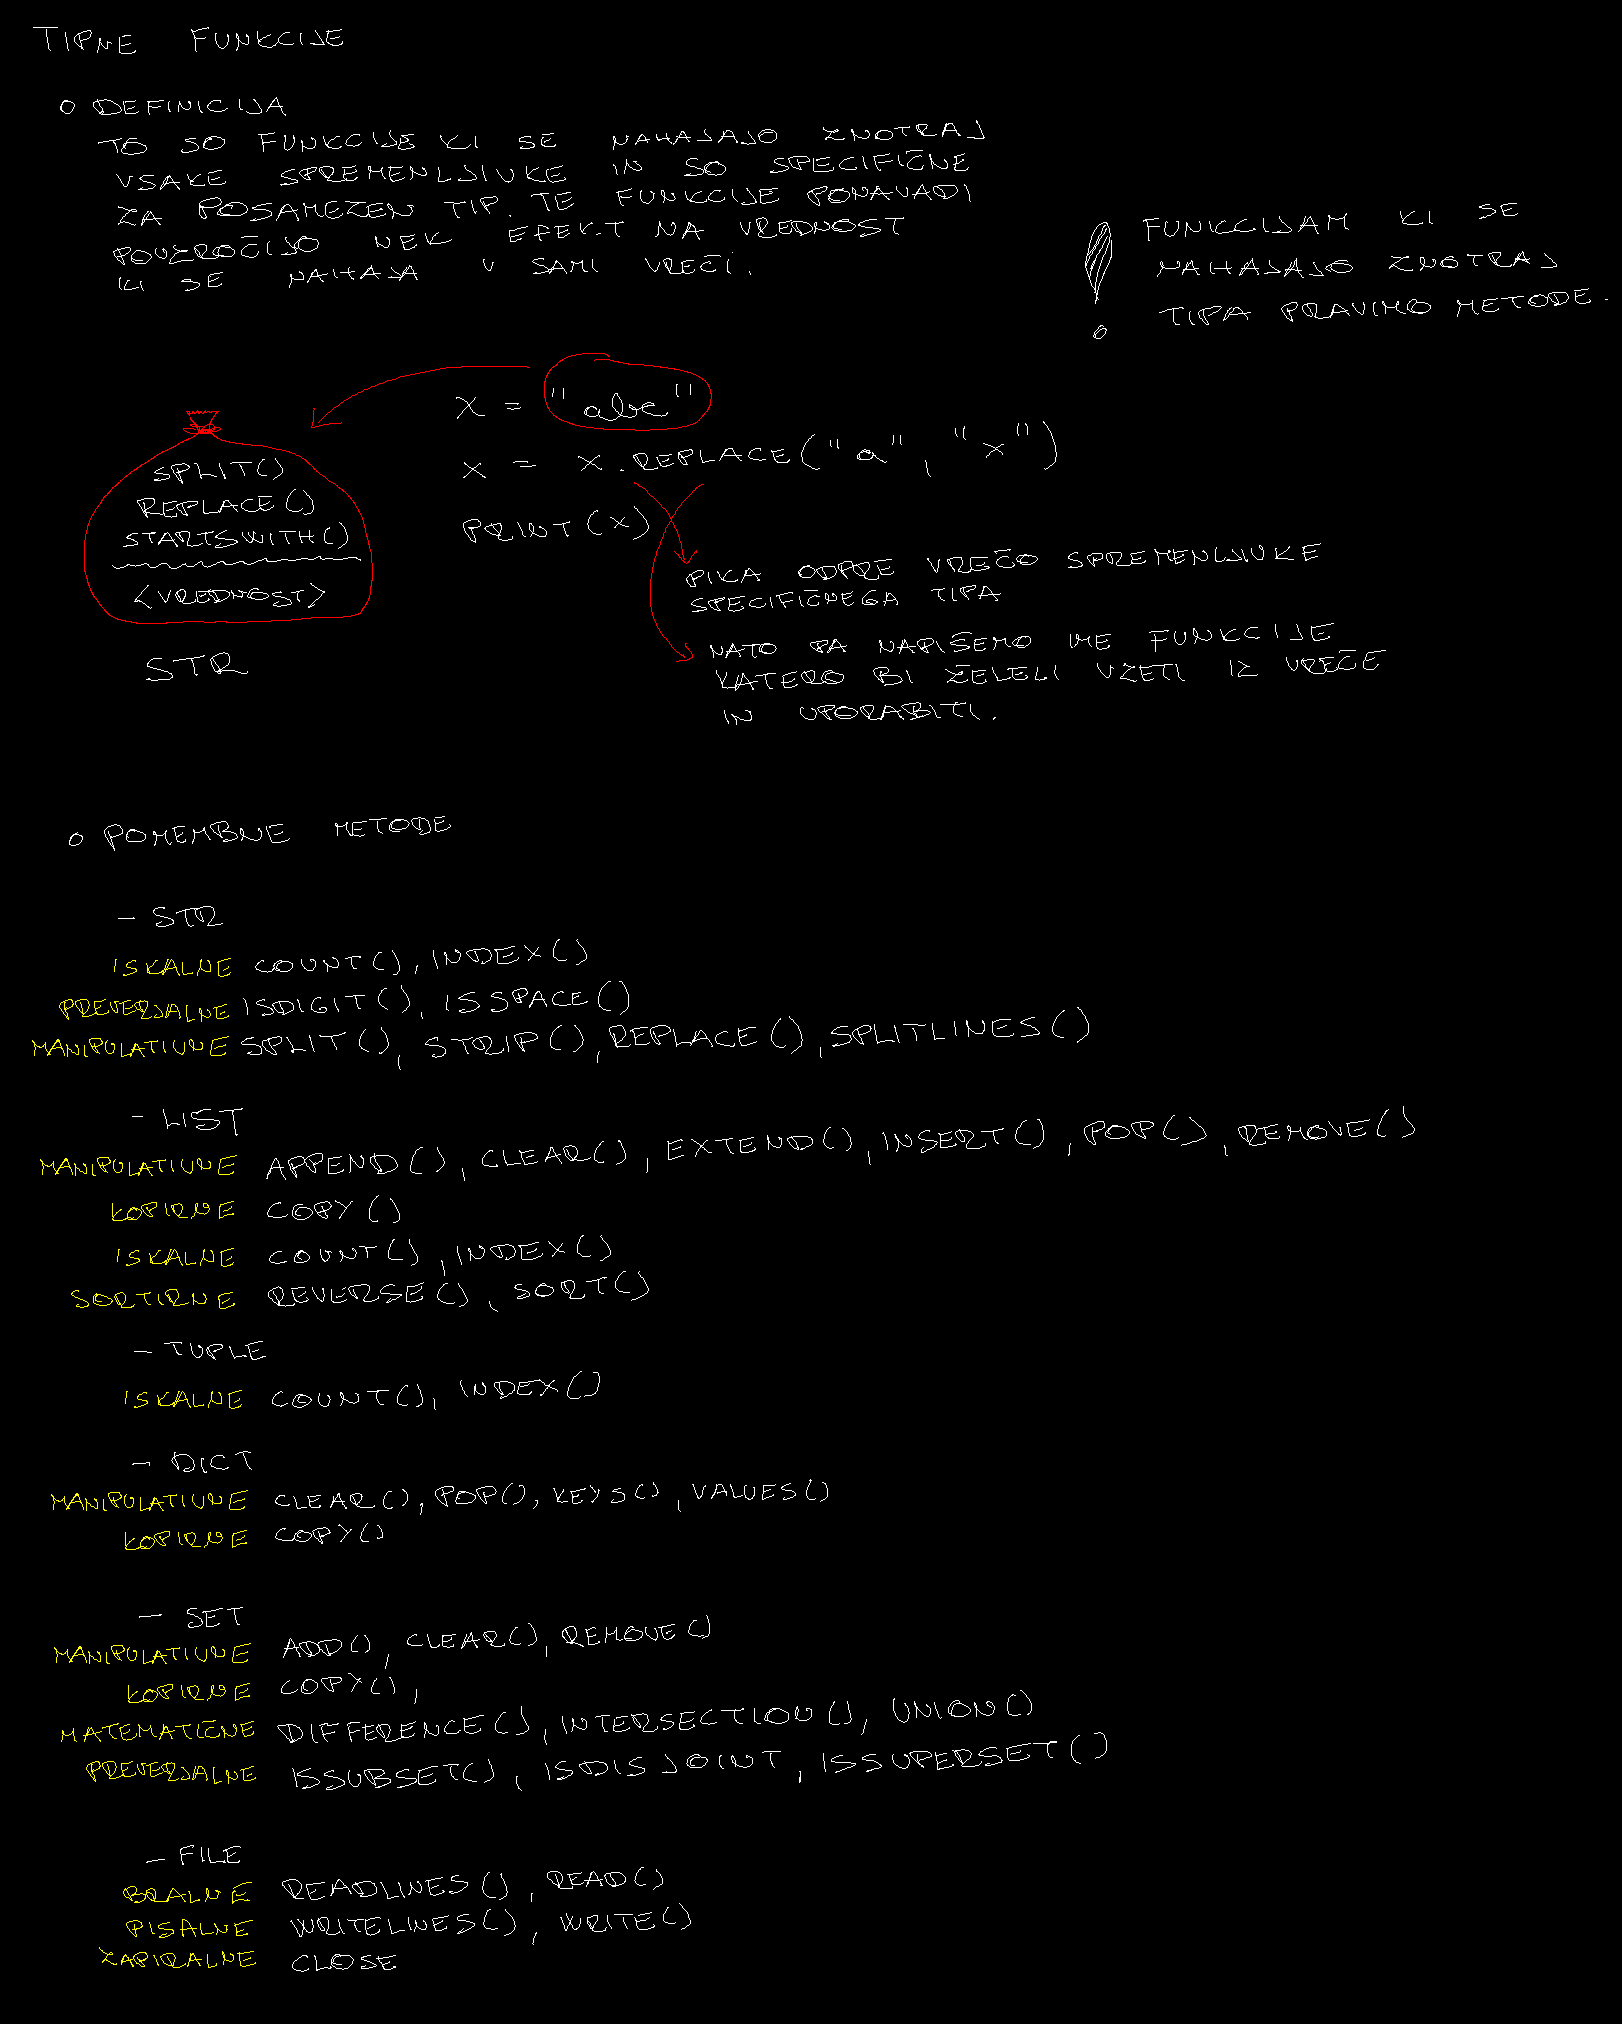 TIPNE FUNKCIJE
o DEFINICIJA
TO SO FUNKCIJE KI SE NAHAJAJO ZNOTRAJ
VSAKE SPREMENLJIVKE IN SO SPECIFIČNE
ZA POSAMEZEN TIP. TE FUNKCIJE PONAVADI
POVZROČIJO NEK EFEKT NA VREDNOST
KI SE NAHAJA V SAMI VREČI.
! FUNKCIJAM KI SE
NAHAJAJO ZNOTRAJ
TIPA PRAVIMO METODE.
SPLIT()
REPLACE()
STARTSWITH()
<VREDNOST>
STR
x = "abc"
x = x.REPLACE("a", "x")
PRINT(x)
PIKA ODPRE VREČO SPREMENLJIVKE
SPECIFIČNEGA TIPA
NATO PA NAPIŠEMO IME FUNKCIJE
KATERO BI ŽELELI VZETI IZ VREČE
IN UPORABITI.
o POMEMBNE METODE
- STR
ISKALNE COUNT(), INDEX()
PREVERJALNE ISDIGIT(), ISSPACE()
MANIPULATIVNE SPLIT(), STRIP(), REPLACE(), SPLITLINES()
- LIST
MANIPULATIVNE APPEND(), CLEAR(), EXTEND(), INSERT(), POP(), REMOVE()
KOPIRNE COPY()
ISKALNE COUNT(), INDEX()
SORTIRNE REVERSE(), SORT()
- TUPLE
ISKALNE COUNT(), INDEX()
- DICT
MANIPULATIVNE CLEAR(), POP(), KEYS(), VALUES()
KOPIRNE COPY()
- SET
MANIPULATIVNE ADD(), CLEAR(), REMOVE()
KOPIRNE COPY(),
MATEMATIČNE DIFFERENCE(), INTERSECTION(), UNION()
PREVERJALNE ISSUBSET(), ISDISJOINT, ISSUPERSET()
- FILE
BRALNE READLINES(), READ()
PISALNE WRITELINES(), WRITE()
ZAPIRALNE CLOSE